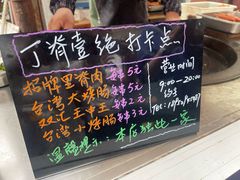 丁脊壹绝 打卡点...
招牌里脊肉 每串5元
台湾大烧肠 每串5元
双汇王中王 每串2元
台湾小烤肠 每串3元
营业时间
9:00—20:00
温馨提示：本店独此一家